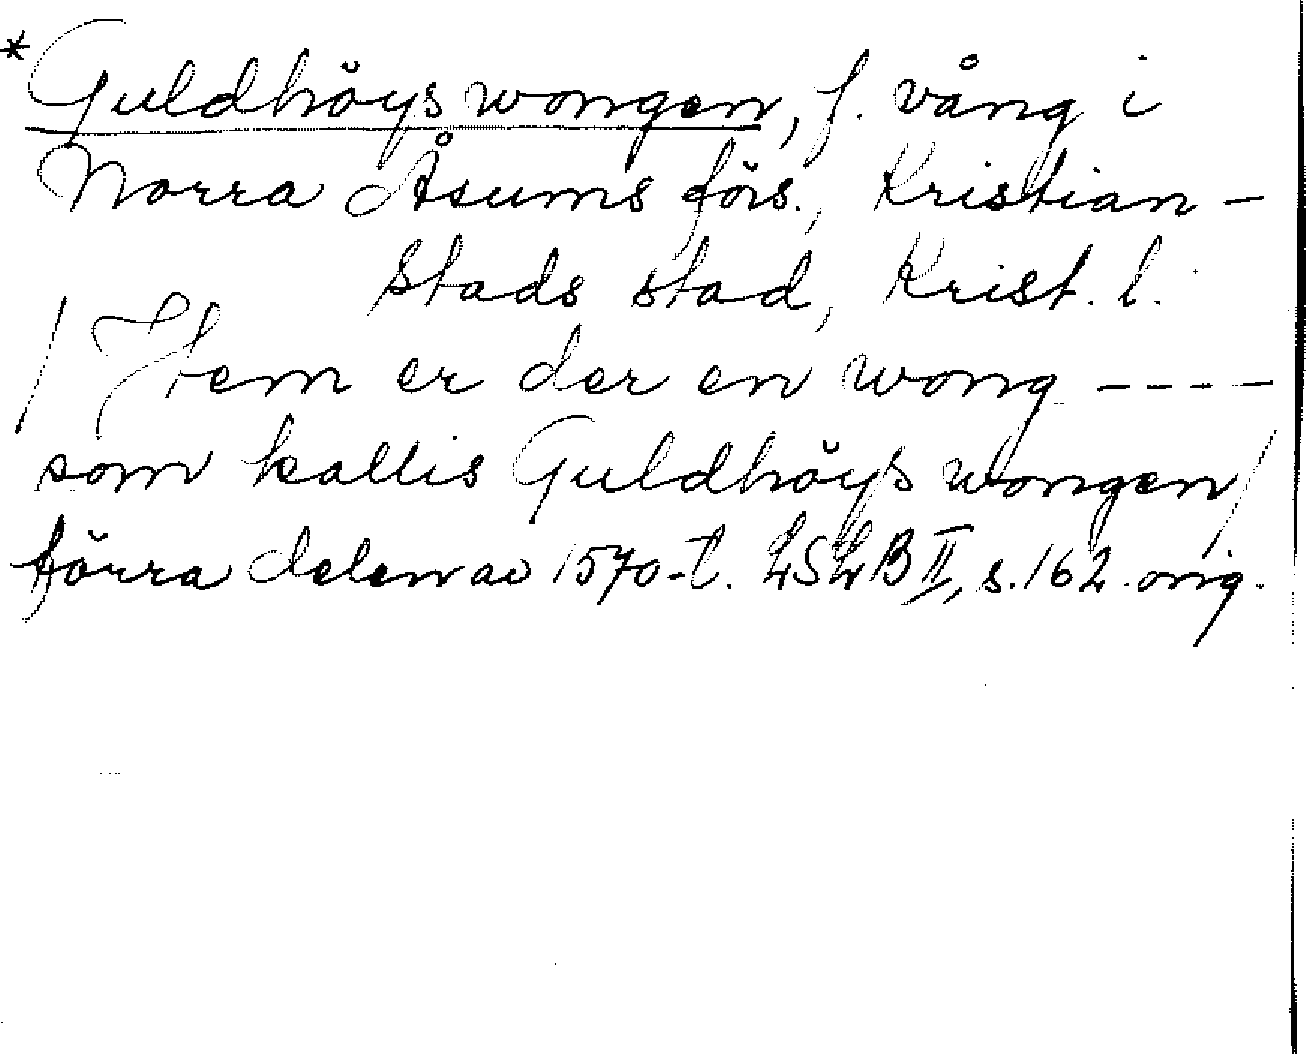 *Guldhöys wongen, f. vång i
Norra Åsums förs., Kristian-
stads stad, Krist. l.
/Item er der en wong ----
som kallis Guldhöys wongen/
förra delen av 1570-t. LSLB II, s. 162. orig.